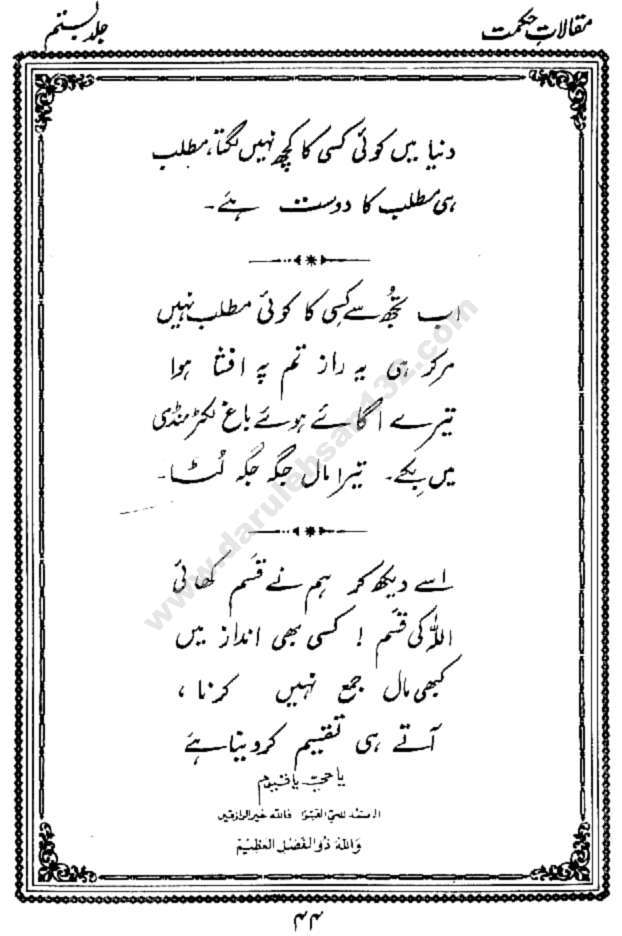 مقالاتِ حکمت
جلد بستم
دنیا میں کوئی کسی کا کچھ نہیں لگتا، مطلب
ہی مطلب کا دوست ہے۔
اب تجھ سے کسی کا کوئی مطلب نہیں
مرکر ہی یہ راز تم پہ افشا ہوا
تیرے اگائے ہوئے باغ لکڑ منڈی
میں بکے۔ تیرا مال جگہ جگہ لُٹا۔
اسے دیکھ کر ہم نے قسَم کھائی
اللہ کی قسَم ! کسی بھی انداز میں
کبھی مال جمع نہیں کرنا ،
آتے ہی تقسیم کردینا ہے
یا حی یا قیوم
الحمد للحی القیوم فاللہ خیر الرازقین
واللہ ذو الفضل العظیم
www.darulehsan132.com
۴۴